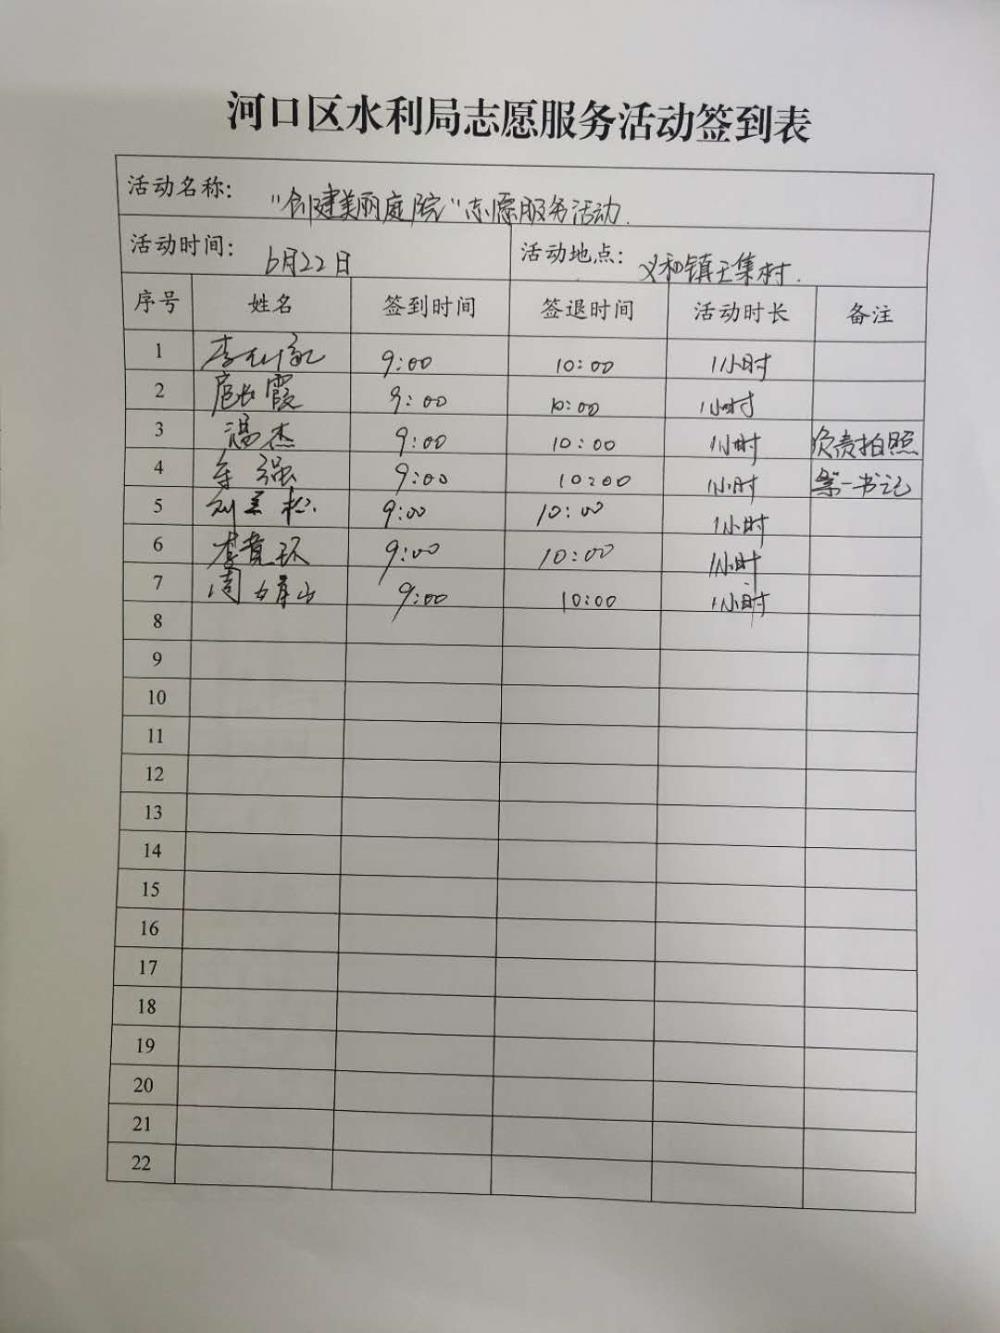 河口区水利局志愿服务活动签到表
活动名称: "创建美丽庭院"志愿服务活动.
活动时间: 6月22日 活动地点: 义和镇王集村.
序号 姓名 签到时间 签退时间 活动时长 备注
1 9:00 10:00 1小时
2 霞 9:00 10:00 1小时
3 冯杰 9:00 10:00 1小时 负责拍照
4 强 9:00 10:00 1小时 第一书记
5 刘 松 9:00 10:00 1小时
6 李 环 9:00 10:00 1小时
7 周 9:00 10:00 1小时
8
9
10
11
12
13
14
15
16
17
18
19
20
21
22